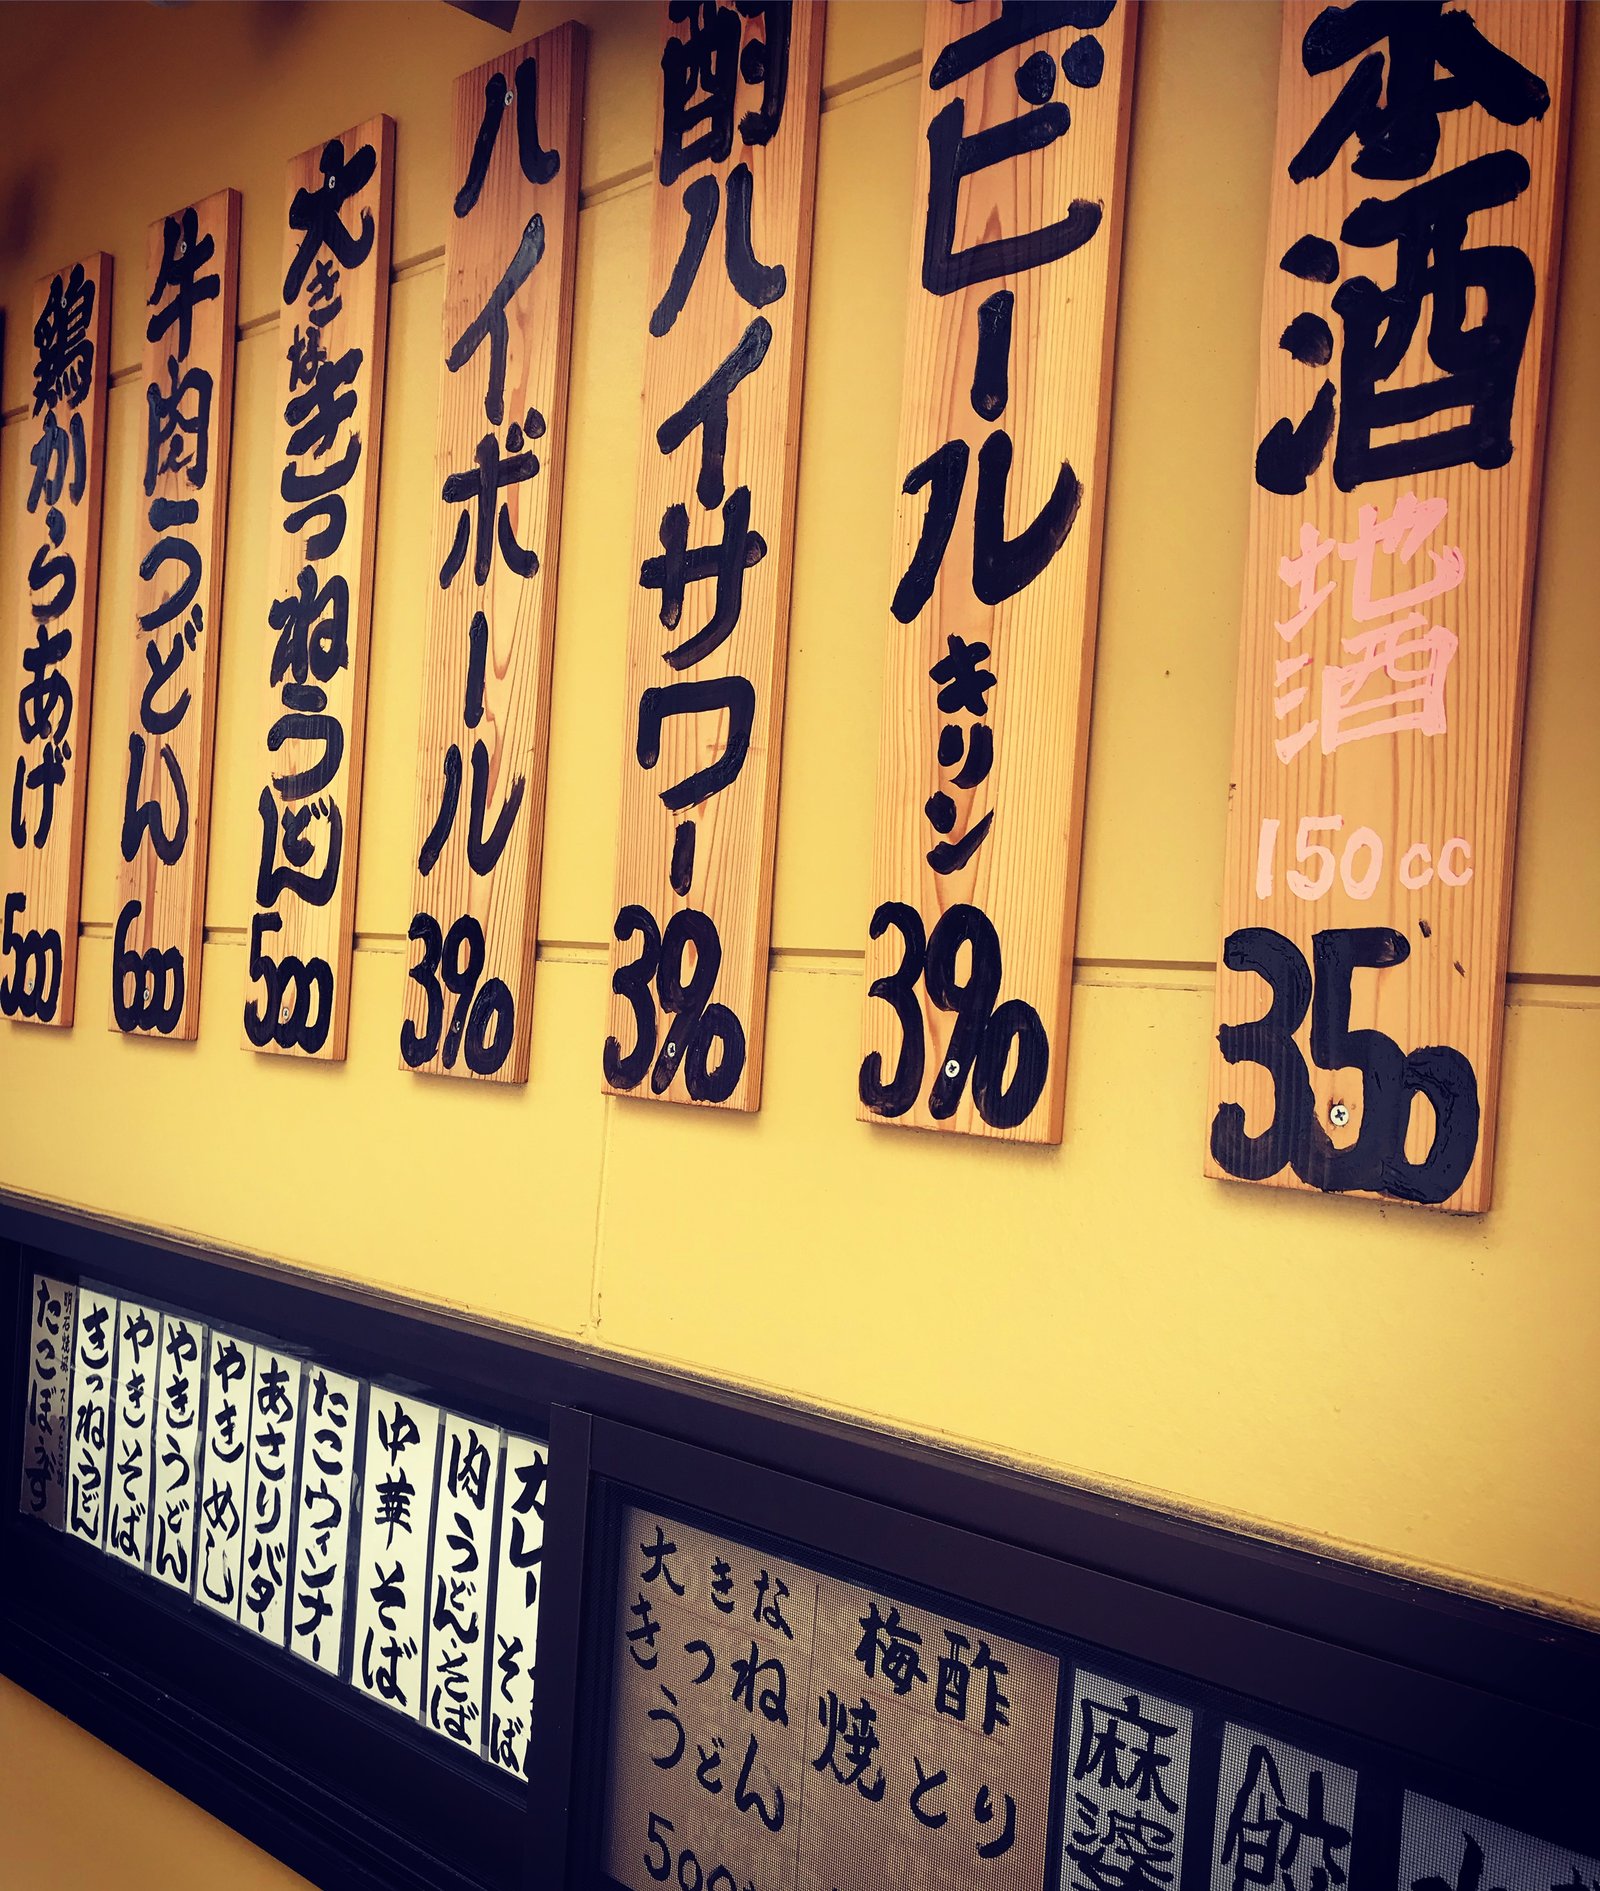 本酒 地酒 150cc 350
ビール キリン 390
酎ハイサワー 390
ハイボール 390
大きなきつねうどん 500
牛肉うどん 600
鶏からあげ 500
カレーそば
肉うどん・そば
中華そば
たこウィンナー
あさりバター
やきめし
やきうどん
やきそば
きつねうどん
たこぼうず
麻婆
梅酢
焼とり
大きな
きつね
うどん
500